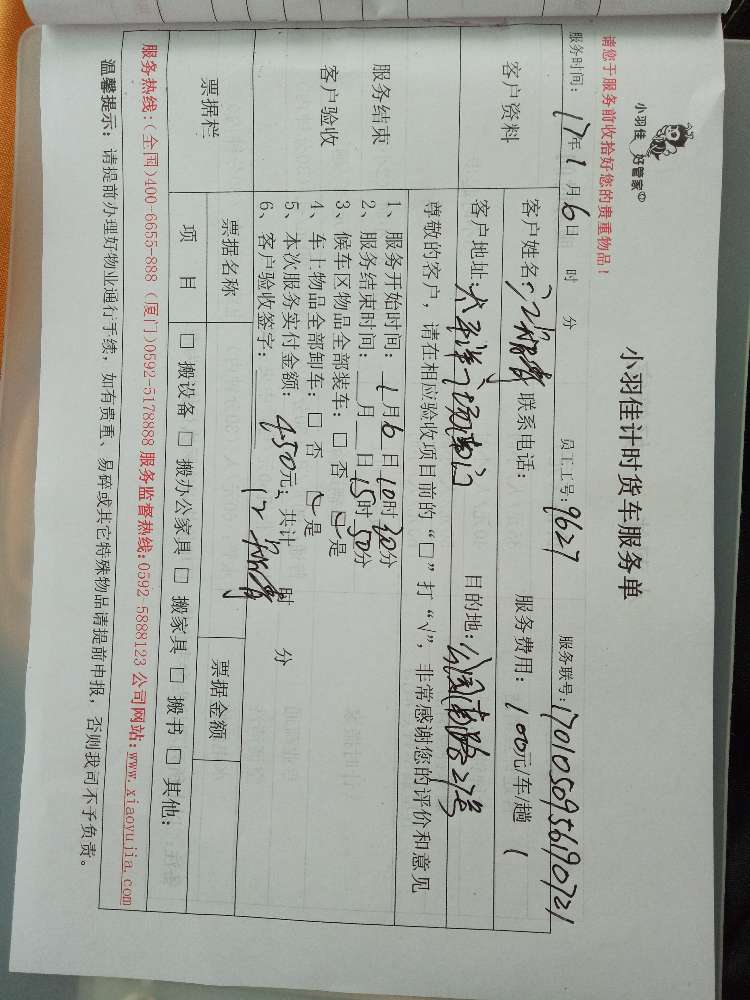 小羽佳 好管家
小羽佳计时货车服务单
请您于服务前收拾好您的贵重物品！
服务时间：17年1月6日 时 分 员工工号：9627 服务联号：170105095690721
客户资料
客户姓名： 联系电话： 服务费用：100元/车/趟 1
客户地址：太平洋广场南门 目的地：公园南路27号
服务结束
客户验收
尊敬的客户，请在相应验收项目前的“□”打“√”，非常感谢您的评价和意见
1、服务开始时间：1月6日10时30分
2、服务结束时间： 月 日15时50分
3、候车区物品全部装车：□ 否 ☑ 是
4、车上物品全部卸车：□ 否 ☑ 是
5、本次服务实付金额：450元；共计 时 分
6、客户验收签字：
票据栏
票据名称 票据金额
项 目 □ 搬设备 □ 搬办公家具 □ 搬家具 □ 搬书 □ 其他：
服务热线：(全国)400-6655-888 (厦门)0592-5178888 服务监督热线：0592-5888123 公司网站：www.xiaoyujia.com
温馨提示：请提前办理好物业通行手续，如有贵重、易碎或其它特殊物品请提前申报，否则我司不予负责。